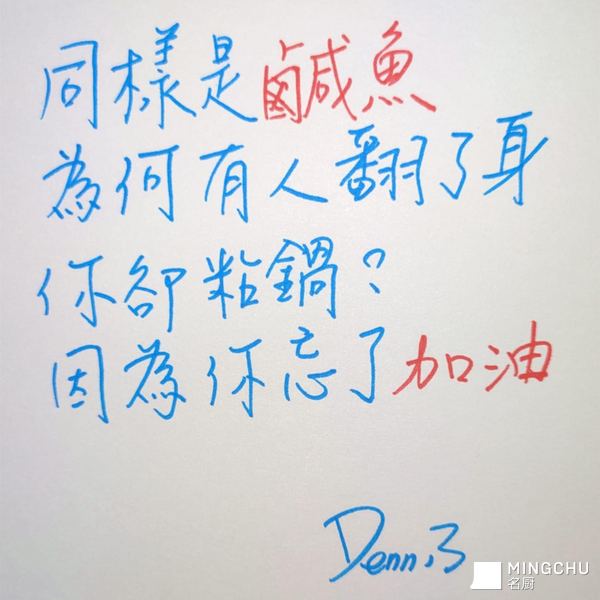 同樣是鹹魚
為何有人翻了身
你卻粘鍋？
因為你忘了加油
Dennis
MINGCHU
名厨